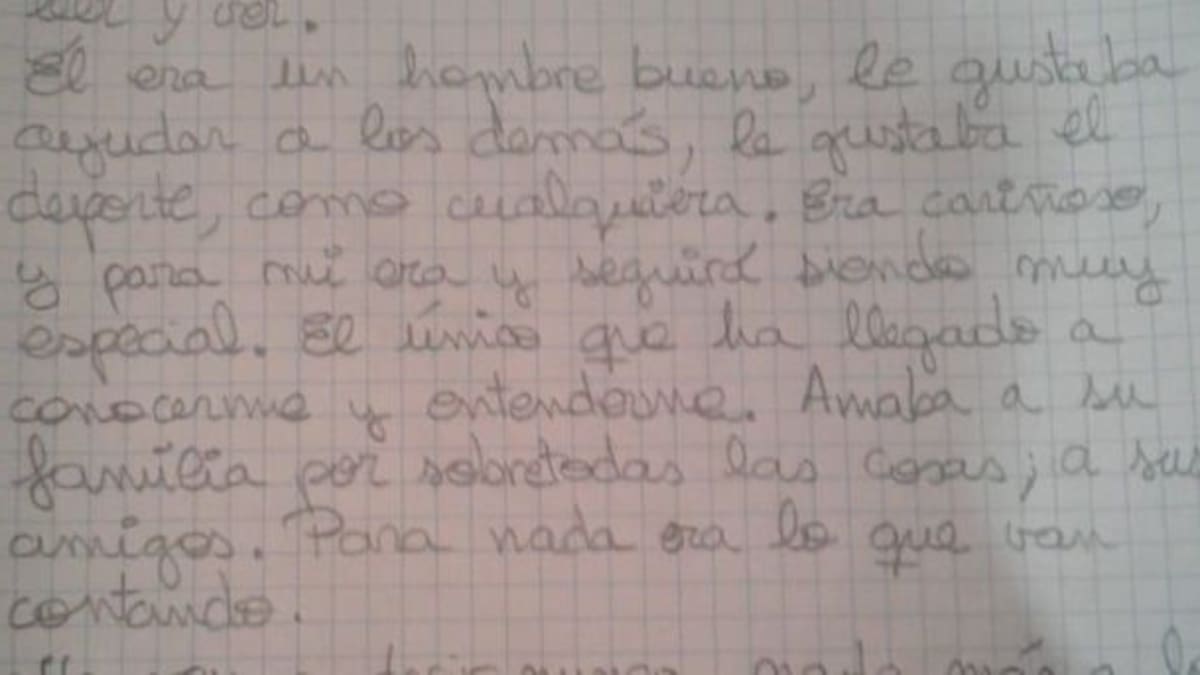 y ver.
Él era un hombre bueno, le gustaba
ayudar a los demás, le gustaba el
deporte, como cualquiera. Era cariñoso,
y para mi era y seguirá siendo muy
especial. El único que ha llegado a
conocerme y entenderme. Amaba a su
familia por sobretodas las cosas, a sus
amigos. Para nada era lo que van
contando.
nada más a